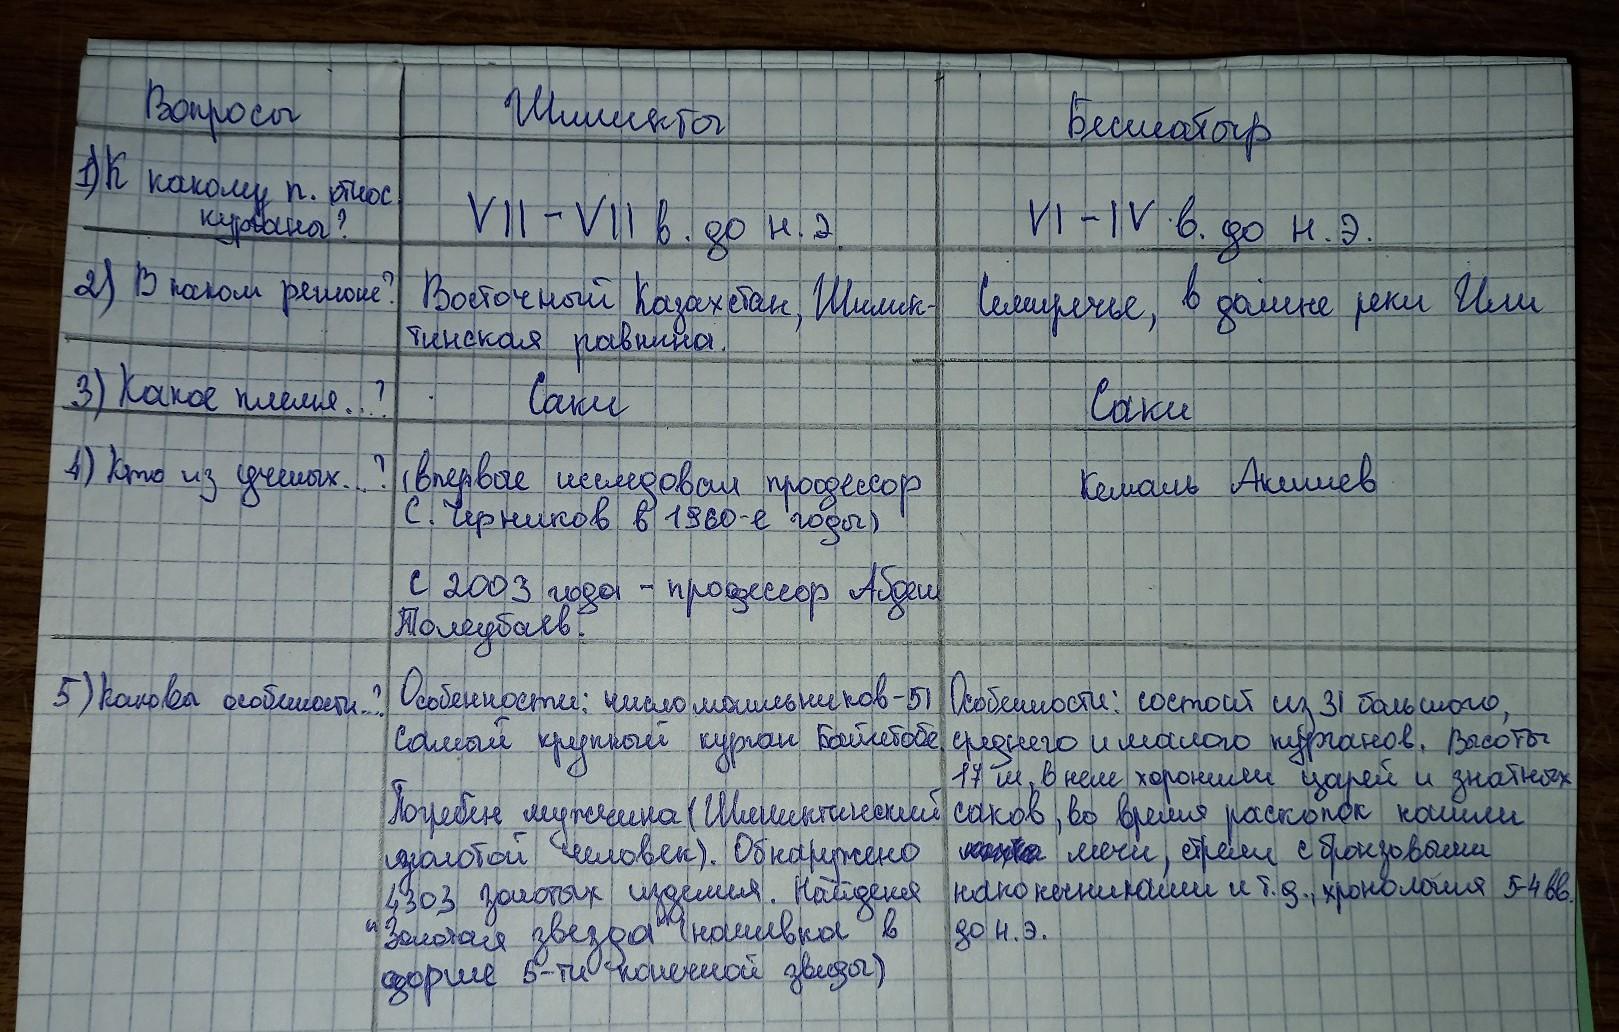 Вопросы
Шиликты
Бесшатыр
1) К какому п. относ
курганы?
VII - VII в. до н.э.
VI - IV в. до н.э.
2) В каком регионе?
Восточный Казахстан, Шилик-
тинская равнина.
Семиречье, в долине реки Или
3) Какое племя...?
Саки
Саки
4) Кто из ученых...?
(впервые исследовал профессор
С. Черников в 1960-е годы)
с 2003 года - профессор Абдеш
Толеубаев.
Кемаль Акишев
5) Каковы особености...?
Особенности: число могильников - 51
Самый крупный курган Байгетобе.
Погребен мужчина (Шиликтинский
золотой человек). Обнаружено
4303 золотых изделия. Найдена
"Золотая звезда" (нашивка в
форме 5-ти конечной звезды)
Особености: состоит из 31 большого,
среднего и малого курганов. Высоты
17 м, в нем хоронили царей и знатных
саков, во время раскопок нашли
мечи, стрелы с бронзовыми
наконечниками и т.д., хронология 5-4 вв.
до н.э.